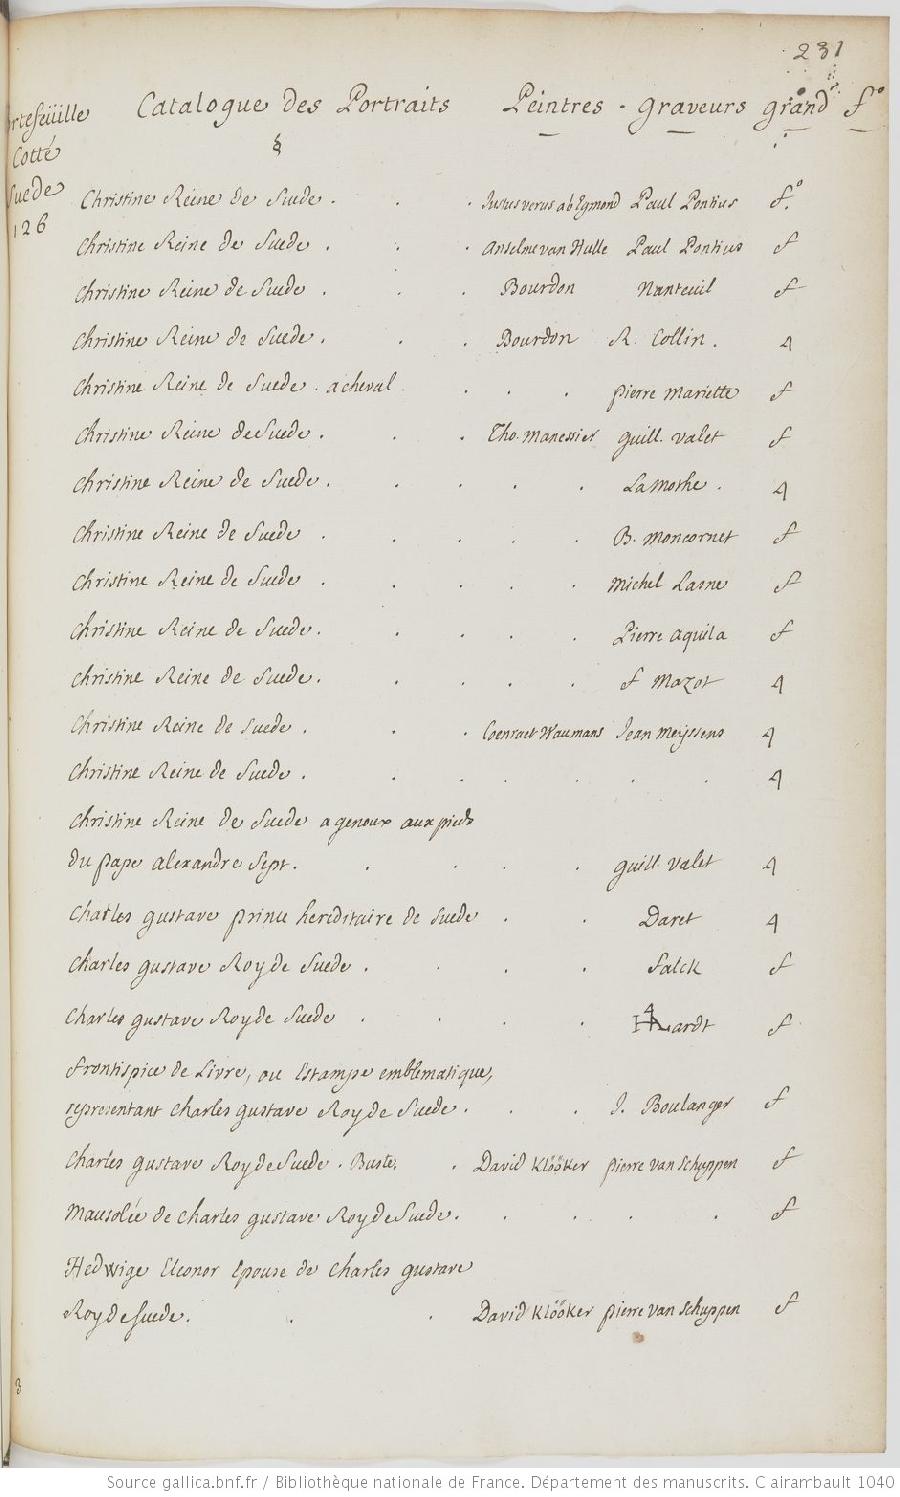 231
Catalogue des Portraits Peintres - graveurs grand fo
Cotté
Suede
126
Christine Reine de Suede . . . Justus verus ab Egmond Paul Pontius fo.
Christine Reine de Suede . . . Anselme van Hulle Paul Pontius f
Christine Reine de Suede . . . Bourdon Nanteuil f
Christine Reine de Suede . . . Bourdon R. Collin . 4
Christine Reine de Suede . a cheval . . . pierre Mariette f
Christine Reine de Suede . . . Tho. Manessier guill. valet f
Christine Reine de Suede . . . . . La Mothe . 4
Christine Reine de Suede . . . . . B. Moncornet f
Christine Reine de Suede . . . . . Michel Lasne f
Christine Reine de Suede . . . . . Pierre aquila f
Christine Reine de Suede . . . . . f Mazot 4
Christine Reine de Suede . . . Coenraet Waumans Jean Meyssens 4
Christine Reine de Suede . . . . . . . 4
Christine Reine de Suede a genoux aux pieds
du pape alexandre sept . . . . guill. valet 4
Charles gustave prince hereditaire de Suede . . Daret 4
Charles gustave Roy de Suede . . . . Falck f
Charles gustave Roy de Suede . . . . f
frontispice de Livre, ou Estampe emblematique,
representant charles gustave Roy de Suede . . . J. Boulanger f
Charles gustave Roy de Suede . Buste . . David Klööker pierre van Schuppen f
Mausolée de charles gustave Roy de Suede . . . . . f
Hedwige Eleonor Epouse de Charles gustave
Roy de Suede . . . David Klööker pierre van Schuppen f
3
Source gallica.bnf.fr / Bibliothèque nationale de France. Département des manuscrits. Clairambault 1040